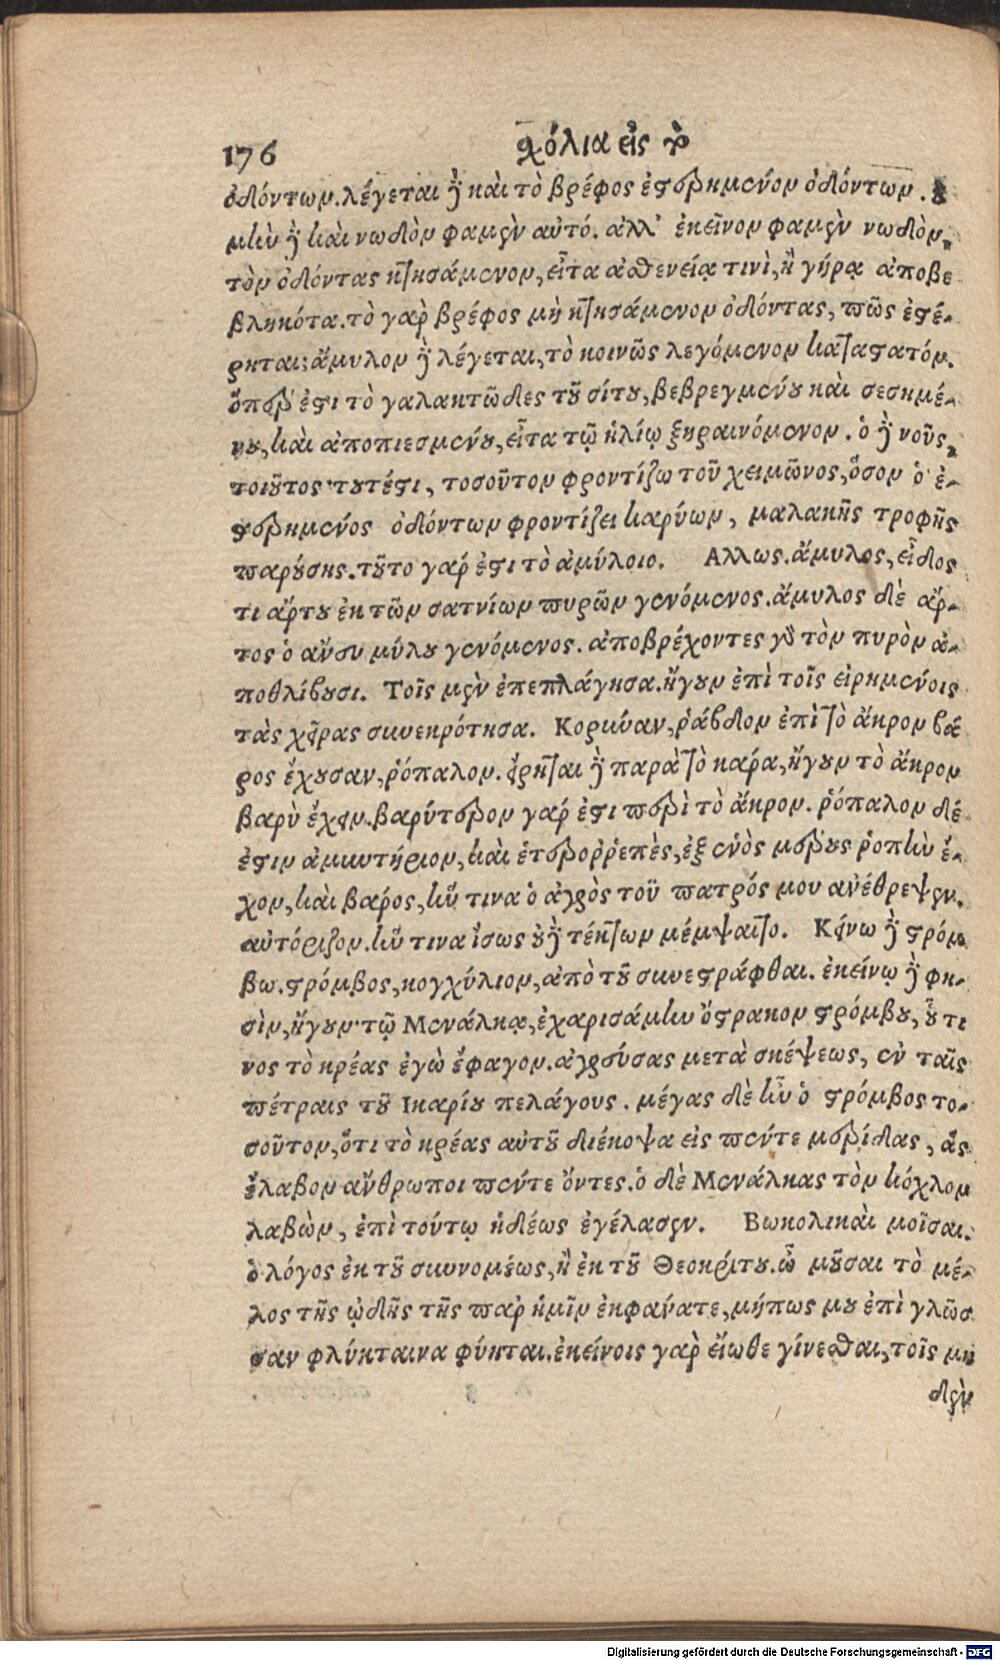 176 σχόλια εἰς τὸ
ὀδόντων. λέγεται δὲ καὶ τὸ βρέφος ἐστερημένον ὀδόντων. οὐ
μὴν δὲ καὶ νωδὸν φαμὲν αὐτό. ἀλλ' ἐκεῖνον φαμὲν νωδὸν,
τὸν ὀδόντας κτησάμενον, εἶτα ἀσθενείᾳ τινὶ, ἢ γήρᾳ ἀποβε
βληκότα. τὸ γαρ βρέφος μὴ κτησάμενον ὀδόντας, πῶς ἐστέ-
ρηται; ἄμυλον δὲ λέγεται, τὸ κοινῶς λεγόμενον καταστατόν.
ὅπερ ἐστι τὸ γαλακτῶδες τοῦ σίτου, βεβρεγμένου καὶ σεσημέ-
νου, καὶ ἀποπιεσμένου, εἶτα τῷ ἡλίῳ ξηραινόμενον. ὁ δὲ νοῦς,
τοιοῦτος· τουτέστι, τοσοῦτον φροντίζω τοῦ χειμῶνος, ὅσον ὁ ἐ-
στερημένος ὀδόντων φροντίζει καρύων, μαλακῆς τροφῆς
παρούσης. τοῦτο γάρ ἐστι τὸ ἀμύλοιο. Αλλως. ἄμυλος, εἶδος
τι ἄρτου ἐκ τῶν σατνίων πυρῶν γενόμενος. ἄμυλος δὲ ἄρ-
τος ὁ ἄνευ μύλου γενόμενος. ἀποβρέχοντες γὰρ τὸν πυρὸν ἀ-
ποθλίβουσι. Τοῖς μὲν ἐπεπλάγησα. ἤγουν ἐπὶ τοῖς εἰρημένοις
τὰς χεῖρας συνεκρότησα. Κορύναν, ῥάβδον ἐπὶ τὸ ἄκρον βά
ρος ἔχουσαν, ῥόπαλον. εἴρηται δὲ παρὰ τὸ κάρα, ἤγουν τὸ ἄκρον
βαρὺ ἔχειν. βαρύτερον γάρ ἐστι περὶ τὸ ἄκρον. ῥόπαλον δέ
ἐστιν ἀμυντήριον, καὶ ἑτερορρεπὲς, ἐξ ἑνὸς μέρους ῥοπὴν ἔ-
χον, καὶ βάρος, ἥν τινα ὁ ἀγρὸς τοῦ πατρός μου ἀνέθρεψεν.
αὐτόριζον. ἥν τινα ἴσως οὐδὲ τέκτων μέμψαιτο. Κείνῳ δὲ στρόμ
βω. στρόμβος, κογχύλιον, ἀπὸ τοῦ συνεστράφθαι. ἐκείνῳ δὲ φη-
σὶν, ἤγουν· τῷ Μενάλκᾳ, ἐχαρισάμην ὄστρακον στρόμβου, οὗ τι
νος τὸ κρέας ἐγὼ ἔφαγον. ἀγρεύσας μετὰ σκέψεως, ἐν ταῖς
πέτραις τοῦ Ικαρίου πελάγους. μέγας δὲ ἦν ὁ στρόμβος το-
σοῦτον, ὅτι τὸ κρέας αὐτοῦ διέκοψα εἰς πέντε μερίδας, ἃς
ἔλαβον ἄνθρωποι πέντε ὄντες. ὁ δὲ Μενάλκας τὸν κόχλον
λαβὼν, ἐπὶ τούτῳ ἡδέως ἐγέλασεν. Βωκολικαὶ μοῖσαι.
ὁ λόγος ἐκ τοῦ συνομέως, ἢ ἐκ τοῦ Θεοκρίτου. ὦ μοῦσαι τὸ μέ-
λος τῆς ᾠδῆς τῆς παρ ἡμῖν ἐκφάνατε, μήπως μου ἐπὶ γλῶσ
σαν φλύκταινα φύηται. ἐκείνοις γὰρ εἴωθε γίνεσθαι, τοῖς μη
δὲν
Digitalisierung gefördert durch die Deutsche Forschungsgemeinschaft - DFG